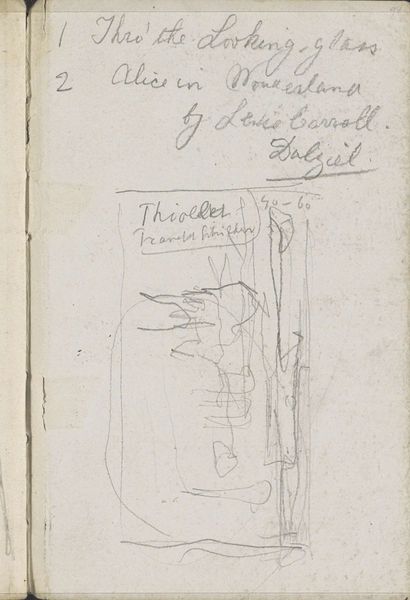 1 Thro' the Looking-glass
2 Alice in Wonderland
by Lewis Carroll.
Dalziel.
40-60